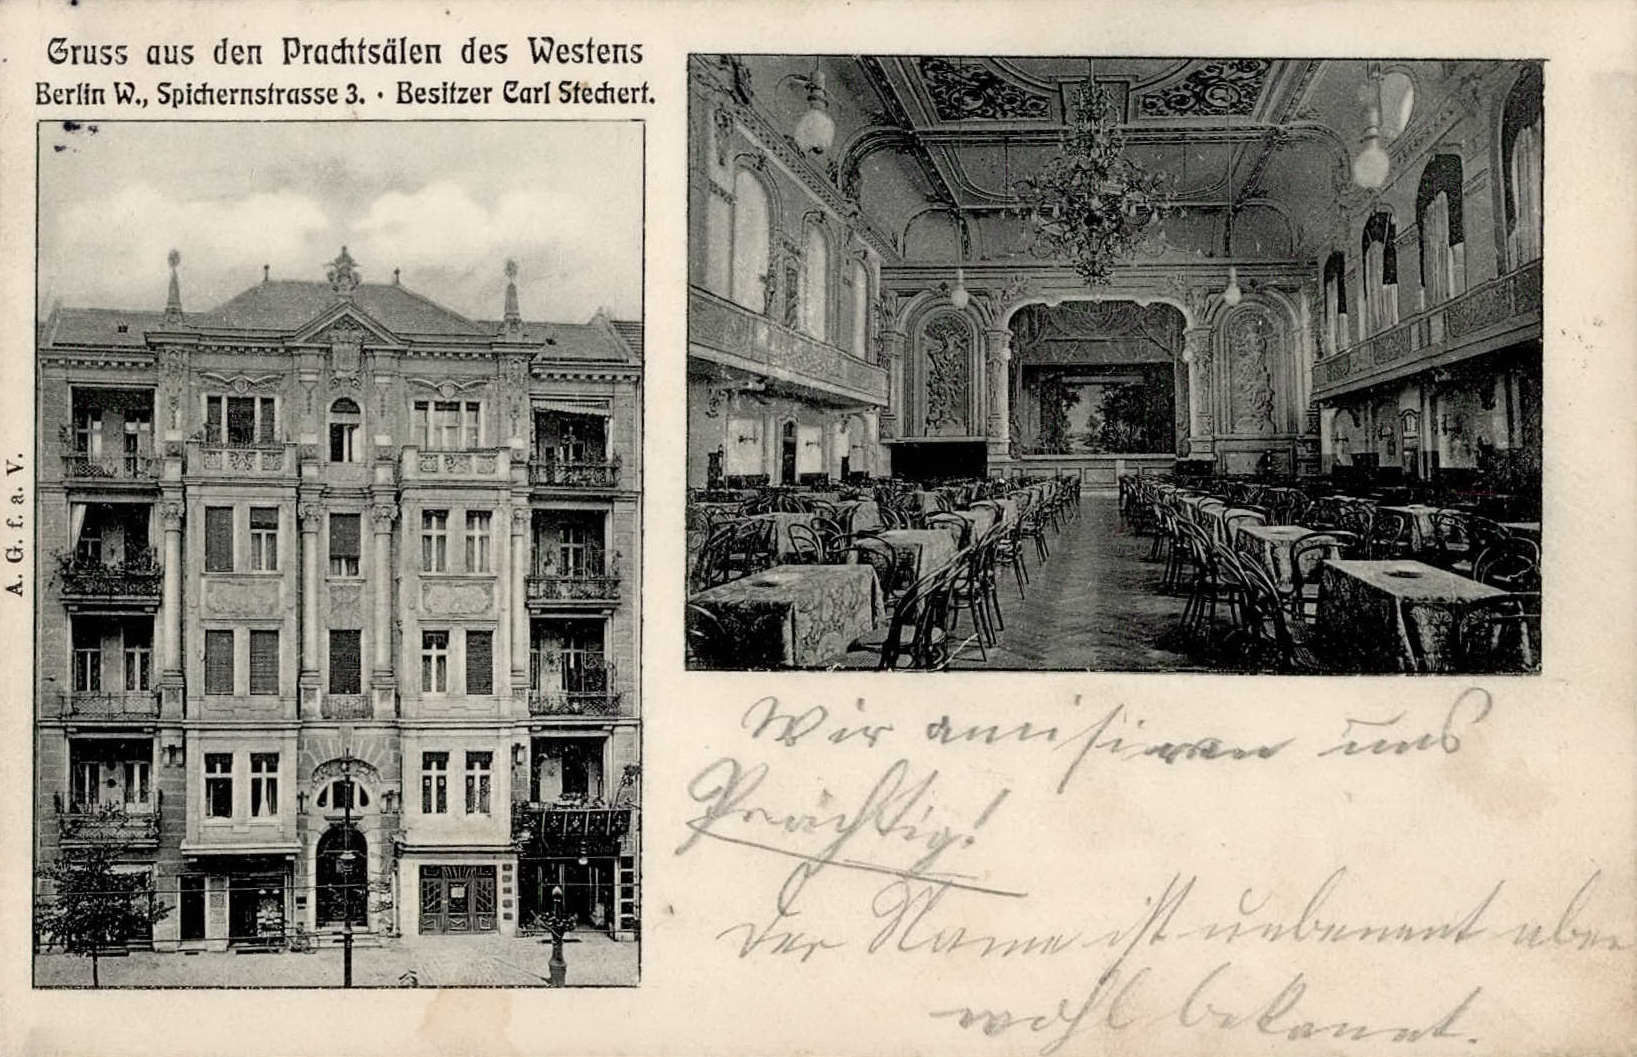 Gruss aus den Prachtsälen des Westens
Berlin W., Spichernstrasse 3. · Besitzer Carl Stechert.
A. G. f. a. V.
Wir amisiren uns
Prächtig!
der Name ist unbenent aber
wohl bekannt.